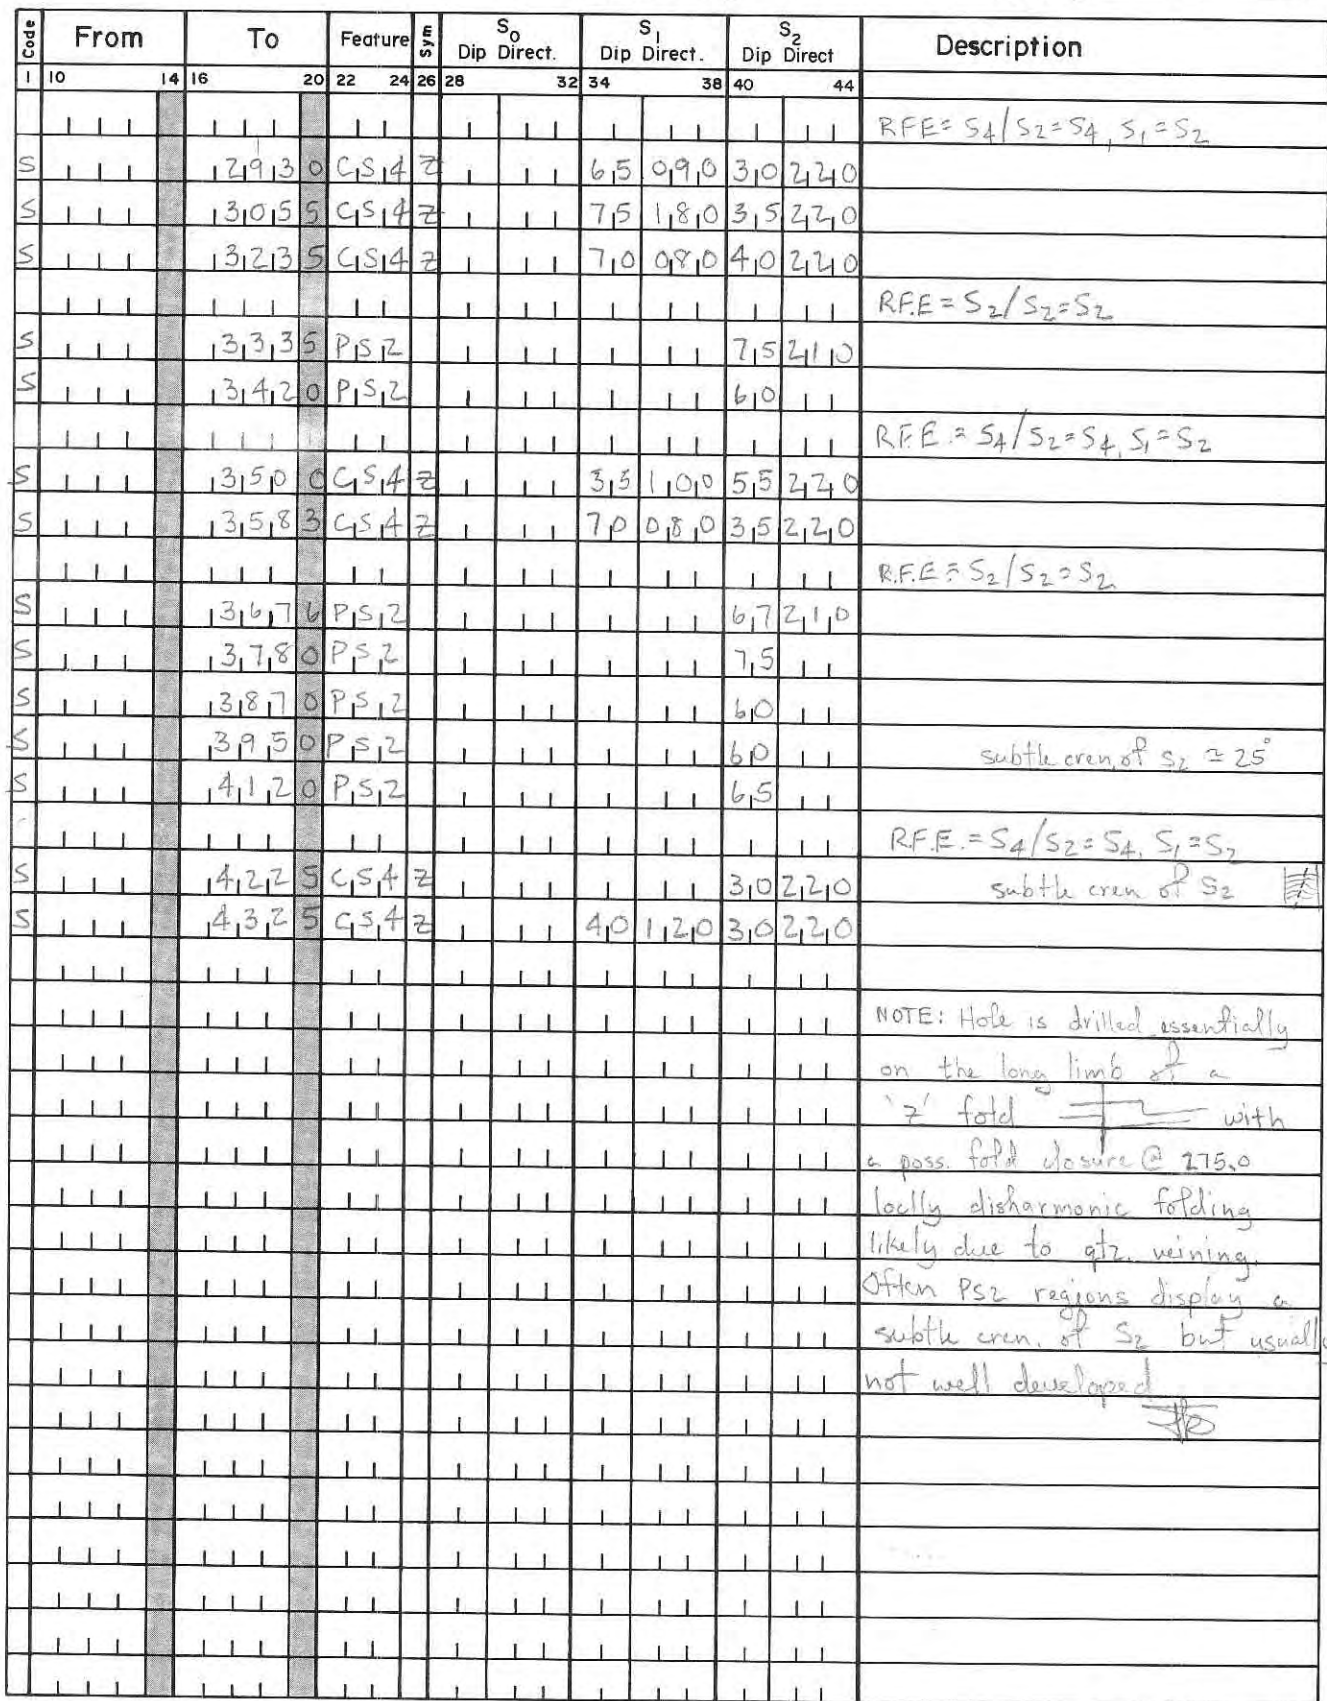 Code From To Feature Sym S0 Dip Direct. S1 Dip Direct. S2 Dip Direct Description
1 10 14 16 20 22 24 26 28 32 34 38 40 44
R.F.E = S4/S2=S4, S1=S2
S 2930 CS4 Z 65 090 30 220
S 3055 CS4 Z 75 180 35 220
S 3235 CS4 Z 70 080 40 220
R.F.E = S2/S2=S2
S 3335 PS2 75 210
S 3420 PS2 60
R.F.E. = S4/S2=S4, S1=S2
S 3500 CS4 Z 35 100 55 220
S 3583 CS4 Z 70 080 35 220
R.F.E = S2/S2=S2
S 3676 PS2 67 210
S 3780 PS2 75
S 3870 PS2 60
S 3950 PS2 60 subtle cren. of S2 ≃ 25°
S 4120 PS2 65
R.F.E. = S4/S2=S4, S1=S2
S 4225 CS4 Z 30 220 subtle cren of S2
S 4325 CS4 Z 40 120 30 220
NOTE: Hole is drilled essentially
on the long limb of a
'z' fold with
a poss. fold closure @ 275.0
loclly disharmonic folding
likely due to qtz. veining.
Often PS2 regions display a
subtle cren. of S2 but usually
not well developed